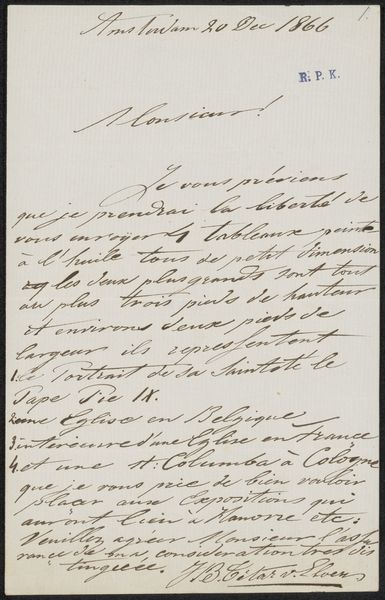 1.
Amsterdam 20 Dec 1866
R. P. K.
Monsieur!
Je vous préviens
que je prendrai la liberté de
vous envoyer 4 tableaux peints
à l'huile tous de petit dimension
les deux plus grands sont tout
au plus trois pieds de hauteur
et environs deux pieds de
largeur ils representent
1. le Portrait de Sa Sainteté le
Pape Pie IX.
2 une Eglise en Belgique
3 interieure d'une Eglise en France
4. et une St. Columba à Cologne
que je vous prie de bien vouloir
placer aux Expositions qui
auront lieu à Hanovre etc.
Veuillez agreer Monsieur l'assu
rance de ma consideration tres dis
tinguée.
J B Tétar v. Elven